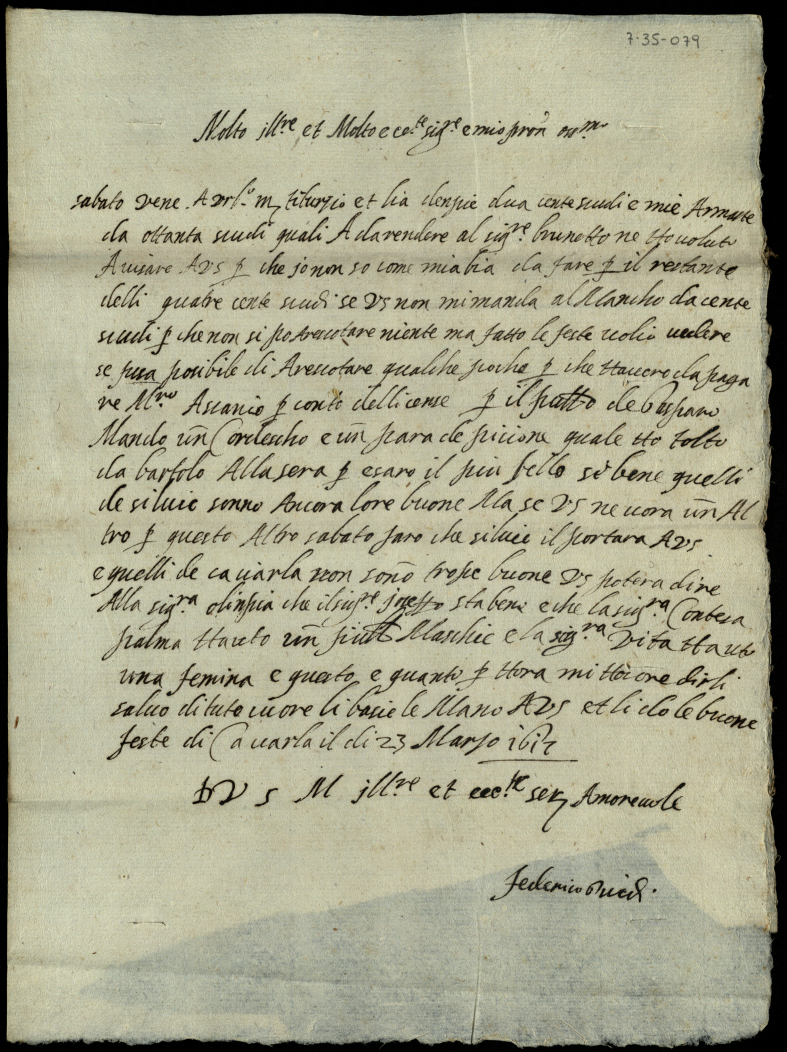 7-35-079
Molto jll.re et Molto ecc.te sig.re e mio pron oss.mo
sabato vene A vrb.o m tiburzio et lia densie dua cente scudi e mie Armaste
da ottanta scudi quali A da rendere al sig.re brunetto ne tto voluto
Avisare A VS p che jo non so come mi abia da fare p il restante
delli quatre cente scudi se VS non mi manda al Mancho da cente
scudi p che non si po Arescotare niente ma fatto le feste volio vedere
se posibile di Arescotare qualche pocho p che ttavero da paga
re M.ro Ascanio p conto dellicense p il putto de Gasparo
Mando un Cordescho e un para de picione quale tto tolto
da bartolo Alla sera p esaro il piu bello se bene quelli
de silvio sonno Ancora lore buone Ma se VS ne vora un Al
tro p questo Altro sabato faro che silvio il portara A VS
e quelli de cavarla non sono trope buone VS potera dire
Alla sig.ra olinpia che il sig.re sta bene e che la sig.ra Contesa
palma ttauto un putt Maschie e la sig.ra Vita ttauto
una femina e questo e quanto p ttora mi ttocore dirli
salvo di tuto cuore li basie le Mano A VS et li do le buone
feste di Cavarla il di 23 Marzo 1617
D V S M jll.re et ecc.te ser Amorevole
federico